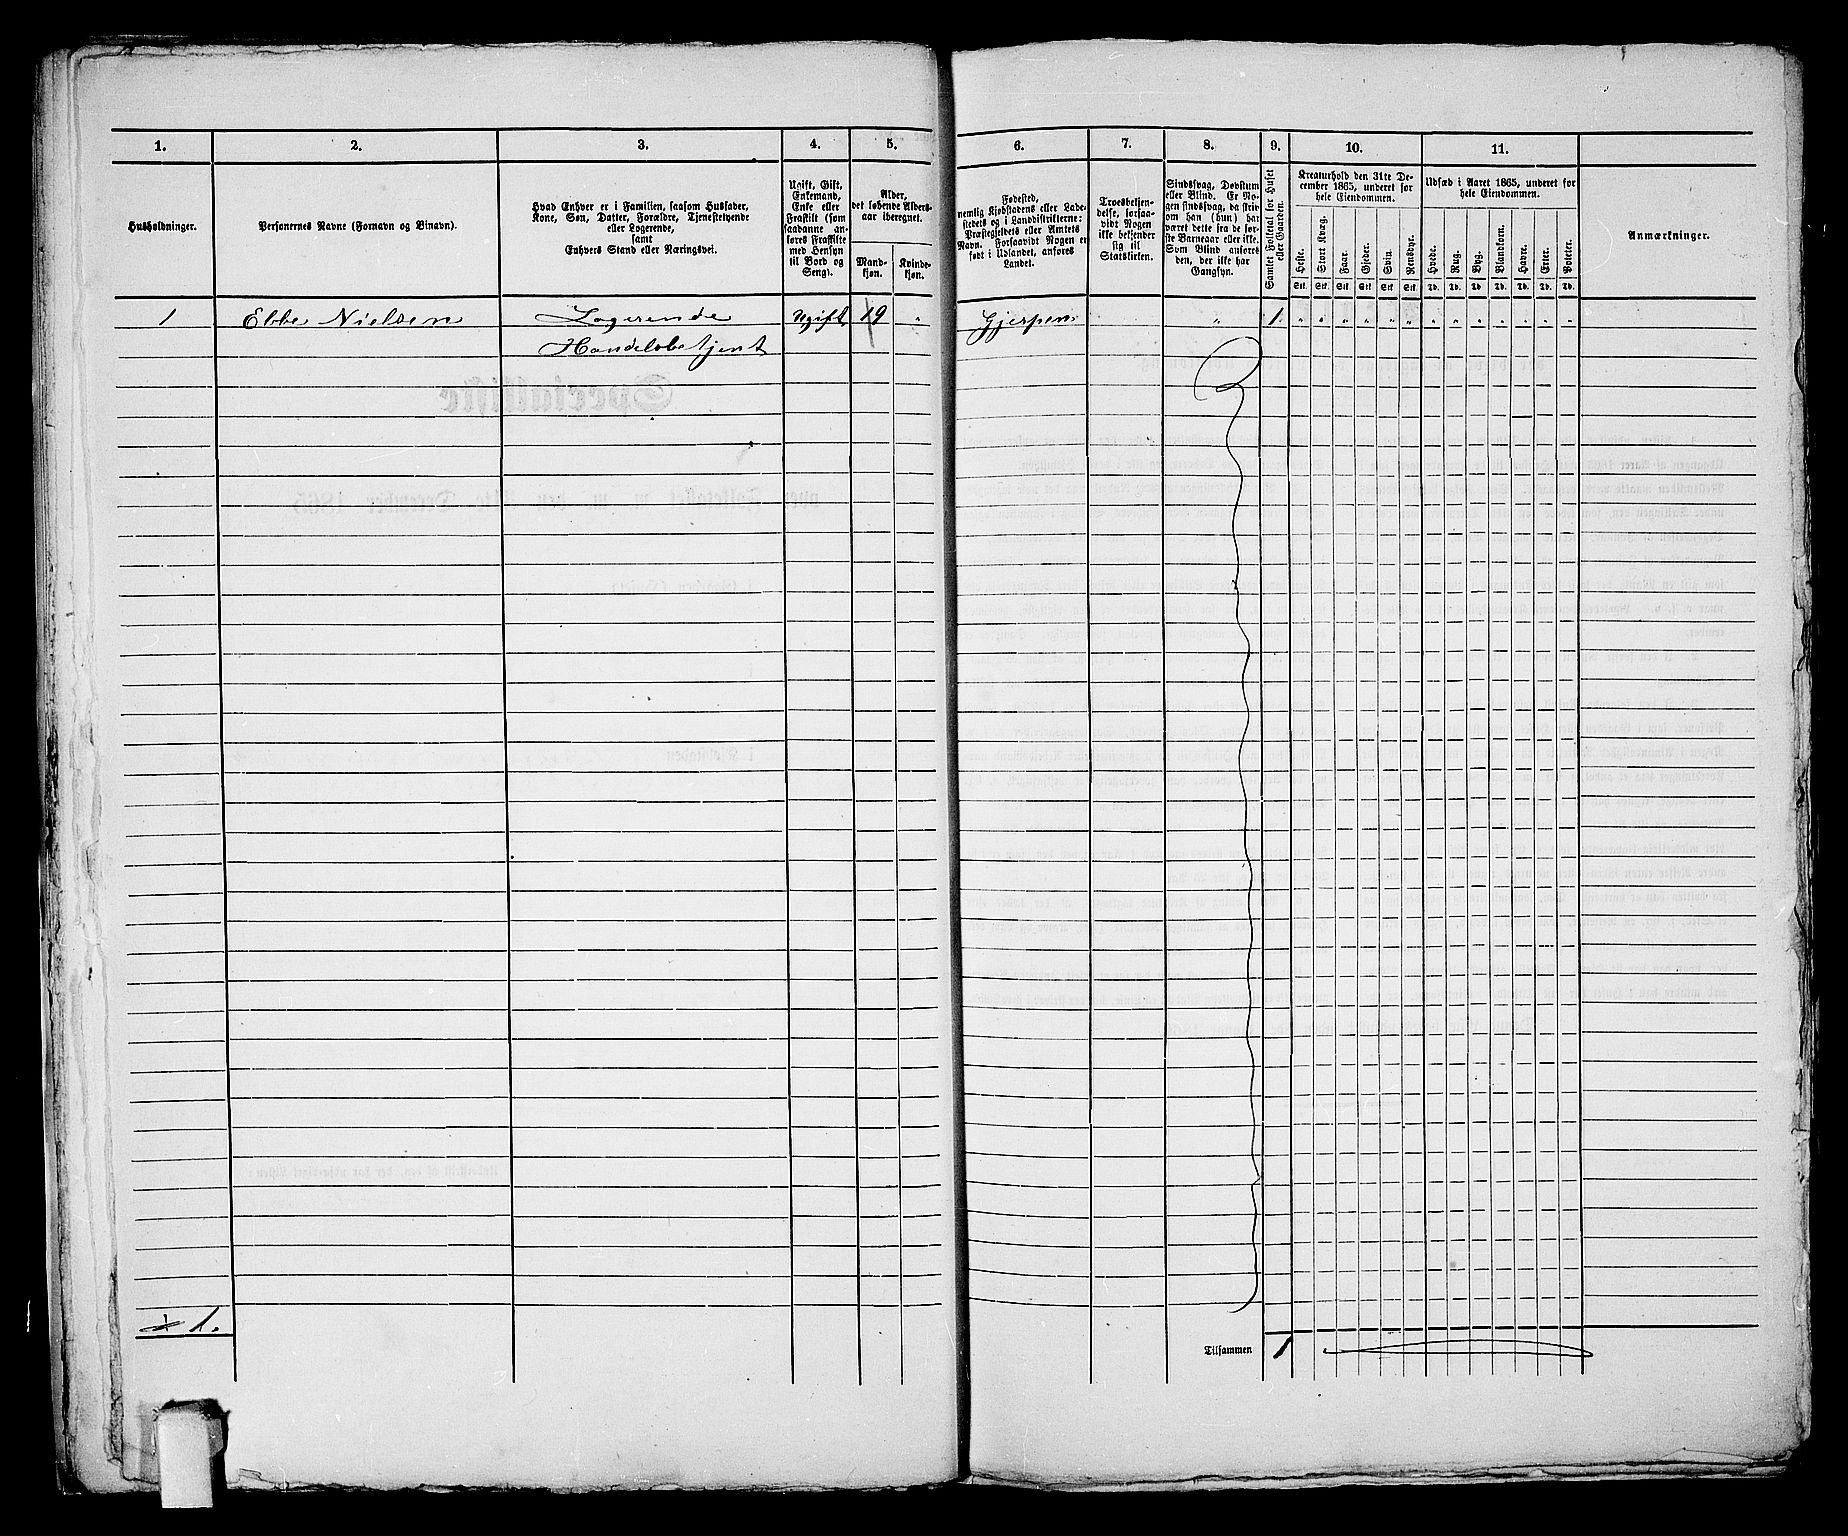 1.
2.
3.
4.
5.
6.
7.
8.
9.
10.
11.
Husholdninger.
Personernes Navne (Fornavn og Binavn).
Hvad Enhver er i Familien, saasom Husfader,
Kone, Søn, Datter, Forældre, Tjenestetyende
eller Logerende,
samt
Enhvers Stand eller Næringsvei.
Ugift, Gift,
Enkemand,
Enke eller
Fraskilt (som
saadanne an-
føres Fraskilte
med Hensyn
til Bord og
Seng).
Alder,
det løbende Alders-
aar iberegnet.
Mand-
kjøn.
Kvinde-
kjøn.
Fødested,
nemlig Kjøbstadens eller Lade-
stedets og i Landdistrikterne:
Præstegjeldets eller Amtets
Navn. Forsaavidt Nogen er
født i Udlandet, anføres
Landet.
Troesbekjen-
delse, forsaa-
vidt Nogen
ikke bekjender
sig til
Statskirken.
Sindssvag, Døvstum
eller Blind. Er No-
gen sindssvag, da skriv
om han (hun) har
været dette fra de før-
ste Barneaar eller ikke.
Som Blind anføres
den, der ikke har
Gangsyn.
Samlet Folketal for Huset
eller Gaarden.
Kreaturhold den 31te De-
cember 1865, underet for
hele Eiendommen.
Heste.
Stort Kvæg.
Faar.
Gjeder.
Svin.
Rensdyr.
Stk. Stk. Stk. Stk. Stk. Stk.
Udsæd i Aaret 1865, underet for
hele Eiendommen.
Hvede.
Rug.
Byg.
Blandkorn.
Havre.
Erter.
Poteter.
Td. Td. Td. Td. Td. Td. Td.
Anmærkninger.
1 Ebbe Nielsen Logerende Ugift 19 " Gjerpen " 1. " " " " " " " " " " " " "
Handelsbetjent
1.
Tilsammen 1